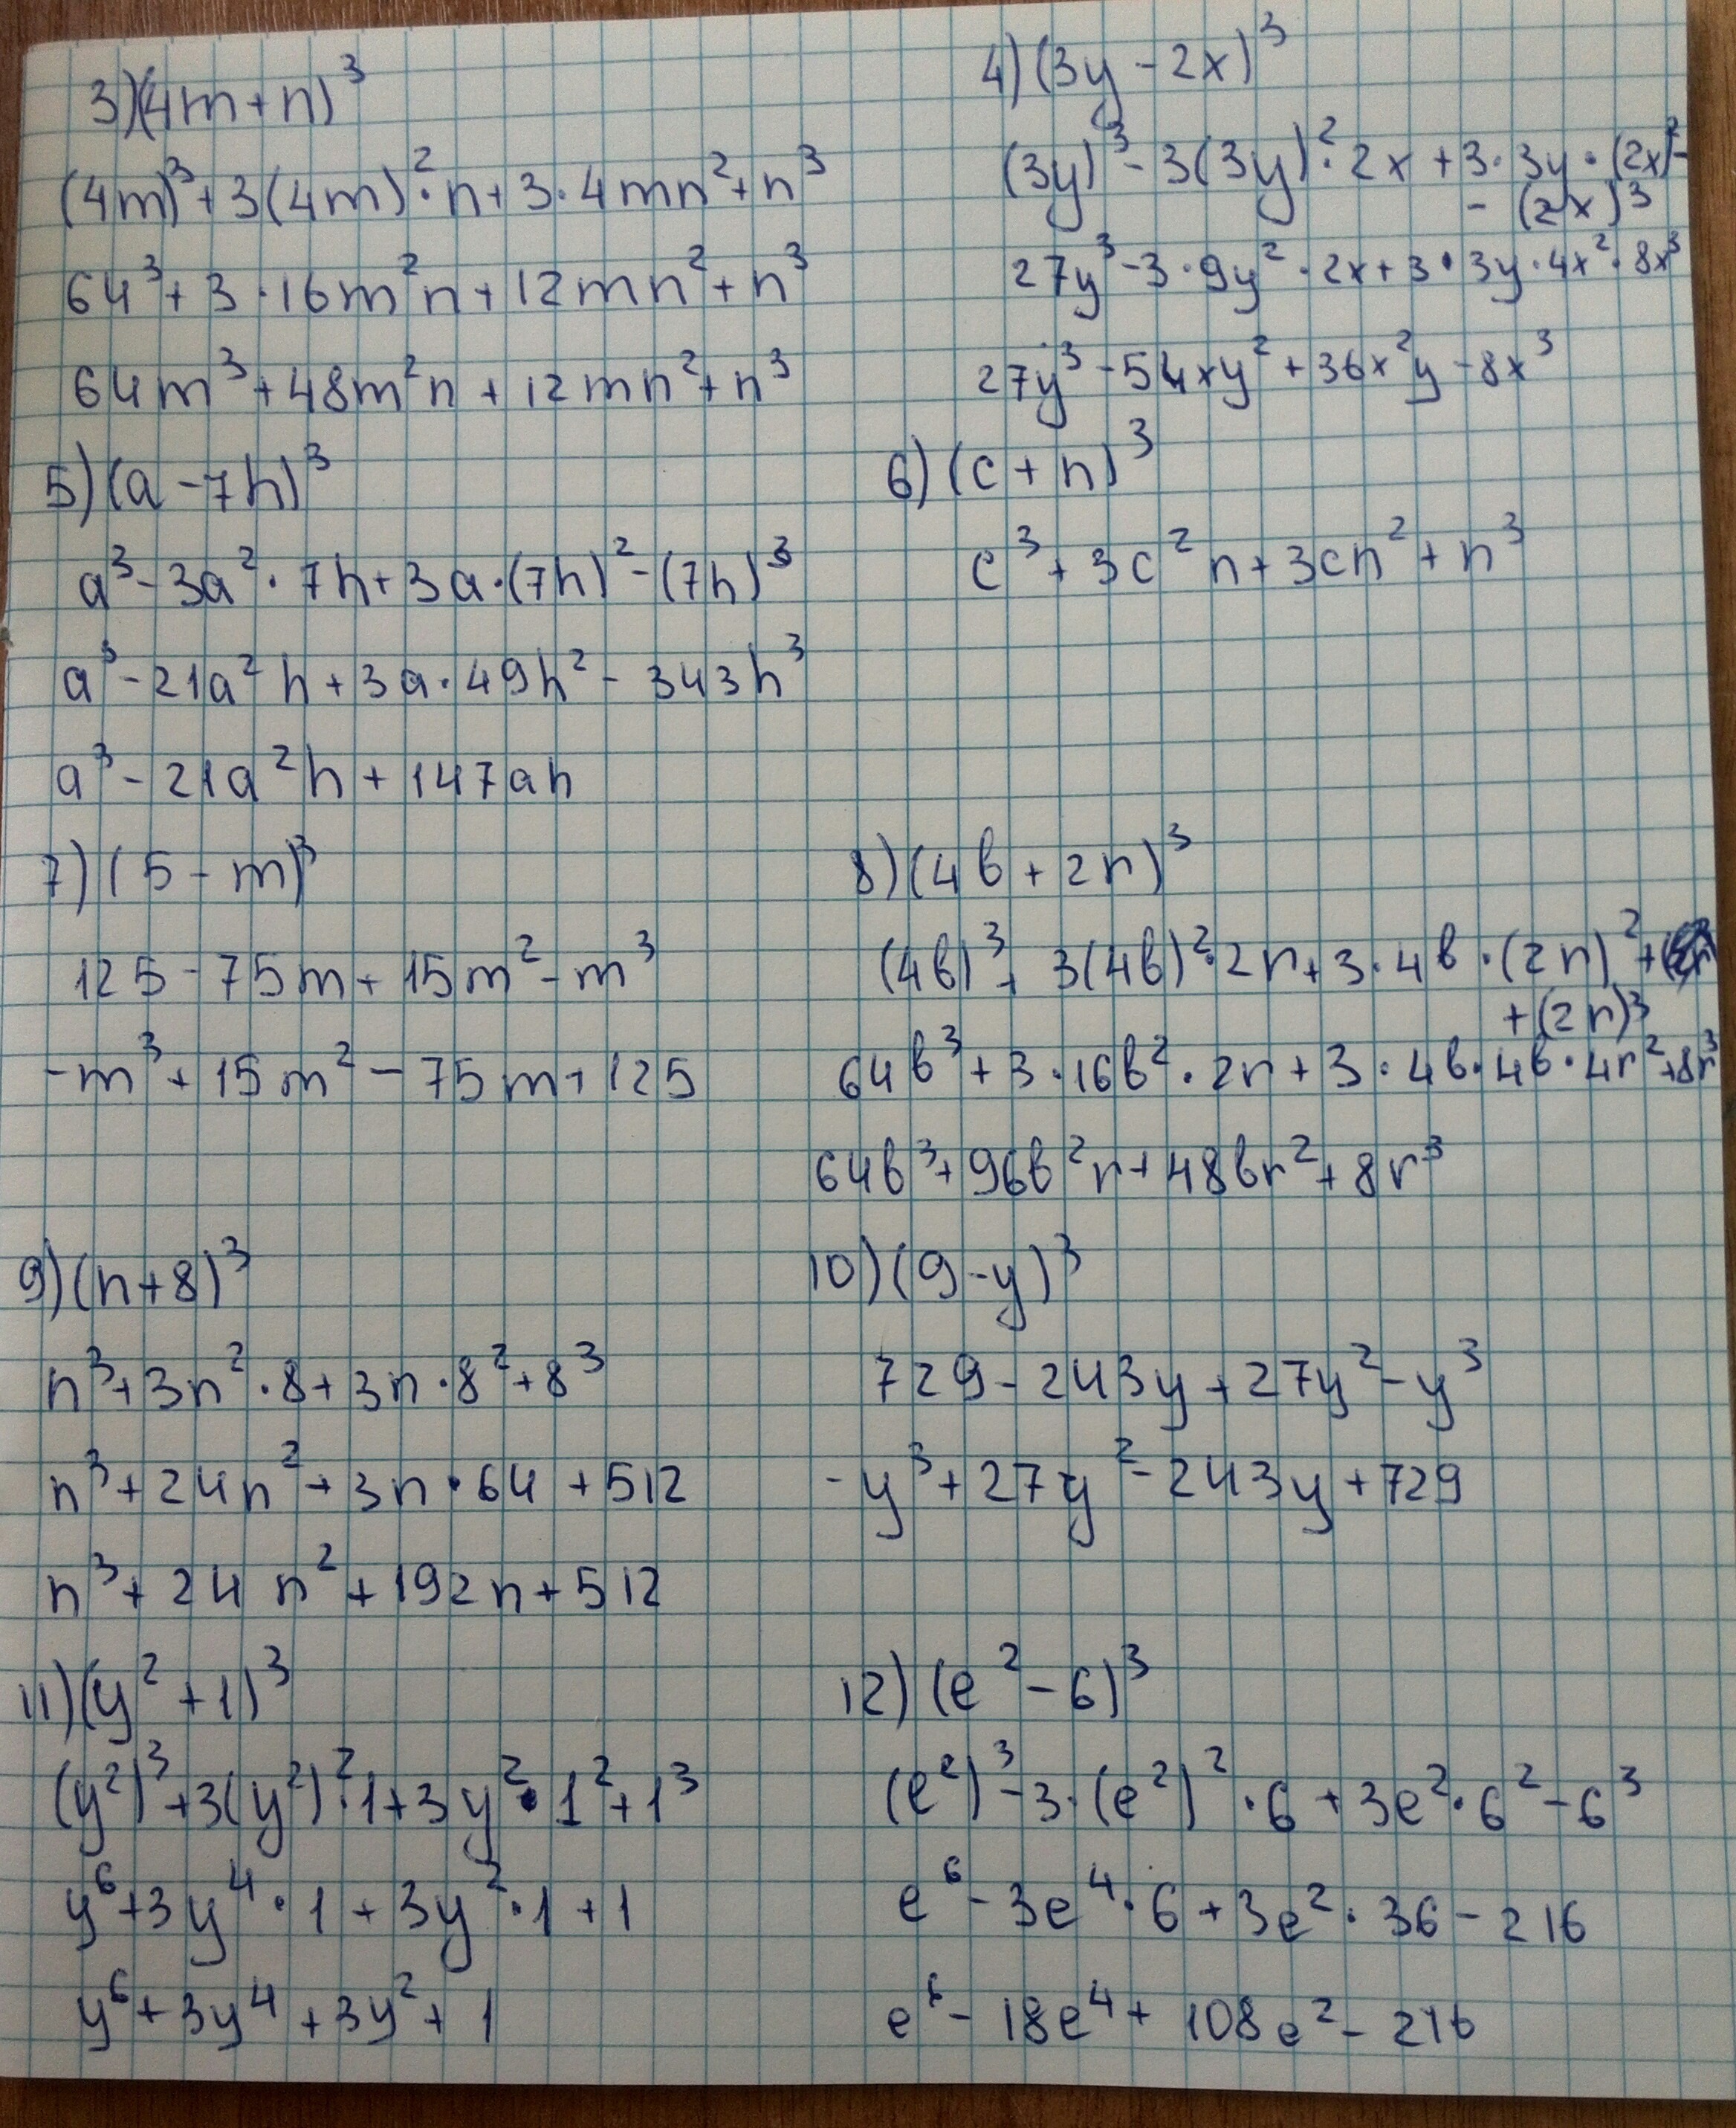 3)(4m+n)³
(4m)³+3(4m)²·n+3·4mn²+n³
64³+3·16m²n+12mn²+n³
64m³+48m²n+12mn²+n³
4)(3y-2x)³
(3y)³-3(3y)²·2x+3·3y·(2x)²-
-(2x)³
27y³-3·9y²·2x+3·3y·4x²·8x³
27y³-54xy²+36x²y-8x³
5)(a-7h)³
a³-3a²·7h+3a·(7h)²-(7h)³
a³-21a²h+3a·49h²-343h³
a³-21a²h+147ah
6)(c+n)³
c³+3c²n+3cn²+n³
7)(5-m)³
125-75m+15m²-m³
-m³+15m²-75m+125
8)(4b+2r)³
(4b)³+3(4b)²·2r+3·4b·(2r)²+
+(2r)³
64b³+3·16b²·2r+3·4b·4b·4r²+8r³
64b³+96b²r+48br²+8r³
9)(n+8)³
n³+3n²·8+3n·8²+8³
n³+24n²+3n·64+512
n³+24n²+192n+512
10)(9-y)³
729-243y+27y²-y³
-y³+27y²-243y+729
11)(y²+1)³
(y²)³+3(y²)²·1+3y²·1²+1³
y⁶+3y⁴·1+3y²·1+1
y⁶+3y⁴+3y²+1
12)(e²-6)³
(e²)³-3·(e²)²·6+3e²·6²-6³
e⁶-3e⁴·6+3e²·36-216
e⁶-18e⁴+108e²-216